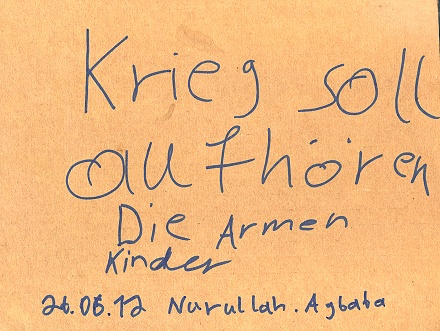 Krieg soll
aufhören
Die Armen
Kinder
26.06.12 Nurullah. Agbaba